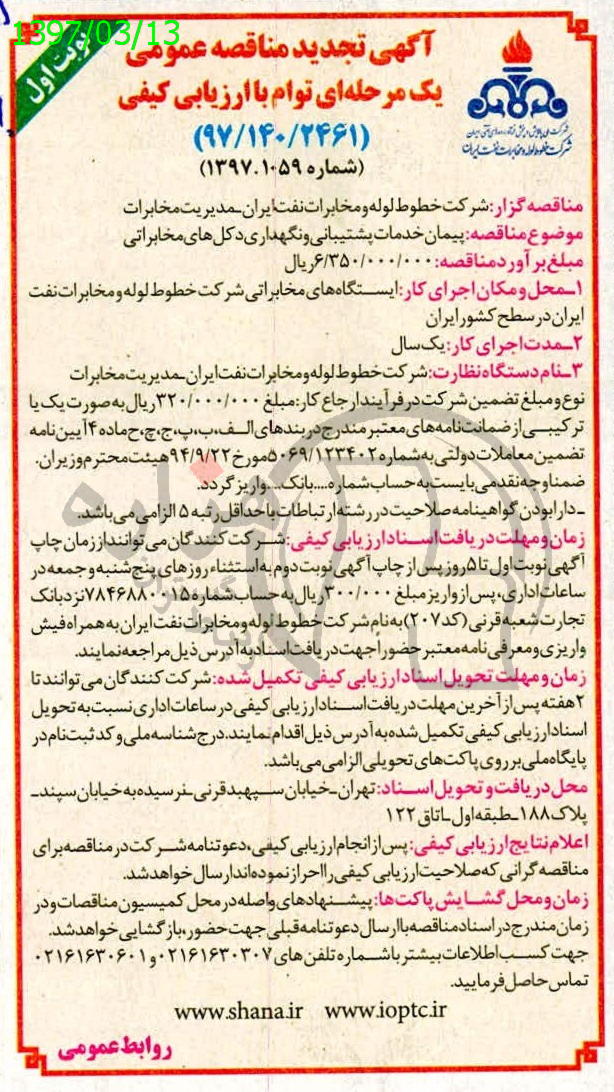 1397/03/13
نوبت اول
آگهی تجدید مناقصه عمومی
یک مرحله‌ای توام با ارزیابی کیفی
(۹۷/۱۴۰/۲۴۶۱)
(شماره ۱۳۹۷.۱۰۵۹)
شرکت ملی پالایش و پخش فرآورده‌های نفتی ایران
شرکت خطوط لوله و مخابرات نفت ایران
مناقصه گزار: شرکت خطوط لوله و مخابرات نفت ایران ـ مدیریت مخابرات
موضوع مناقصه: پیمان خدمات پشتیبانی و نگهداری دکل های مخابراتی
مبلغ برآورد مناقصه: ۶/۳۵۰/۰۰۰/۰۰۰ ریال
۱ـ محل و مکان اجرای کار: ایستگاه های مخابراتی شرکت خطوط لوله و مخابرات نفت
ایران در سطح کشور ایران
۲ـ مدت اجرای کار: یک سال
۳ـ نام دستگاه نظارت: شرکت خطوط لوله و مخابرات نفت ایران ـ مدیریت مخابرات
نوع و مبلغ تضمین شرکت در فرآیند ارجاع کار: مبلغ ۳۲۰/۰۰۰/۰۰۰ ریال به صورت یک یا
ترکیبی از ضمانت نامه های معتبر مندرج در بندهای الف، ب، پ، ج، چ، ح ماده ۴ آیین نامه
تضمین معاملات دولتی به شماره ۵۰۶۹/۱۲۳۴۰۲ مورخ ۹۴/۹/۲۲ هیئت محترم وزیران.
ضمنا وجه نقد می بایست به حساب شماره .... بانک .... واریز گردد.
ـ دارا بودن گواهینامه صلاحیت در رشته ارتباطات با حداقل رتبه ۵ الزامی می باشد.
زمان و مهلت دریافت اسناد ارزیابی کیفی: شرکت کنندگان می توانند از زمان چاپ
آگهی نوبت اول تا ۵ روز پس از چاپ آگهی نوبت دوم به استثناء روزهای پنج شنبه و جمعه در
ساعات اداری، پس از واریز مبلغ ۳۰۰/۰۰۰ ریال به حساب شماره ۷۸۴۶۸۸۰۰۱۵ نزد بانک
تجارت شعبه قرنی (کد ۲۰۷) به نام شرکت خطوط لوله و مخابرات نفت ایران به همراه فیش
واریزی و معرفی نامه معتبر حضوراً جهت دریافت اسناد به آدرس ذیل مراجعه نمایند.
زمان و مهلت تحویل اسناد ارزیابی کیفی تکمیل شده: شرکت کنندگان می توانند تا
۲ هفته پس از آخرین مهلت دریافت اسناد ارزیابی کیفی در ساعات اداری نسبت به تحویل
اسناد ارزیابی کیفی تکمیل شده به آدرس ذیل اقدام نمایند. درج شناسه ملی و کد ثبت نام در
پایگاه ملی بر روی پاکت های تحویلی الزامی می باشد.
محل دریافت و تحویل اسناد: تهران ـ خیابان سپهبد قرنی ـ نرسیده به خیابان سپند ـ
پلاک ۱۸۸ ـ طبقه اول ـ اتاق ۱۲۲
اعلام نتایج ارزیابی کیفی: پس از انجام ارزیابی کیفی، دعوتنامه شرکت در مناقصه برای
مناقصه گرانی که صلاحیت ارزیابی کیفی را احراز نموده اند ارسال خواهد شد.
زمان و محل گشایش پاکت ها: پیشنهادهای واصله در محل کمیسیون مناقصات و در
زمان مندرج در اسناد مناقصه با ارسال دعوتنامه قبلی جهت حضور، بازگشایی خواهد شد.
جهت کسب اطلاعات بیشتر با شماره تلفن های ۰۲۱۶۱۶۳۰۳۰۷ و ۰۲۱۶۱۶۳۰۶۰۱
تماس حاصل فرمایید.
www.shana.ir www.ioptc.ir
روابط عمومی